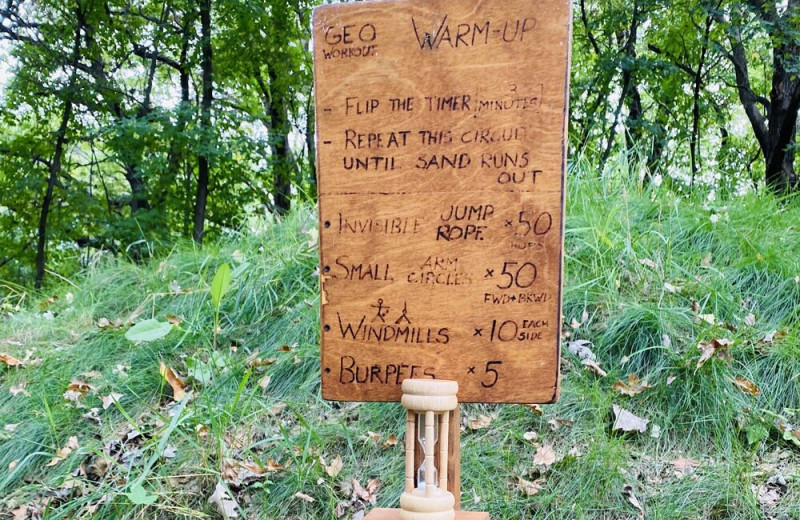 GEO WARM-UP
WORKOUT
- FLIP THE TIMER 3 MINUTES
- REPEAT THIS CIRCUIT
UNTIL SAND RUNS
OUT
• INVISIBLE JUMP ROPE ×50
HOPS
• SMALL ARM CIRCLES ×50
FWD+BKWD
• WINDMILLS ×10 EACH SIDE
• BURPEES ×5